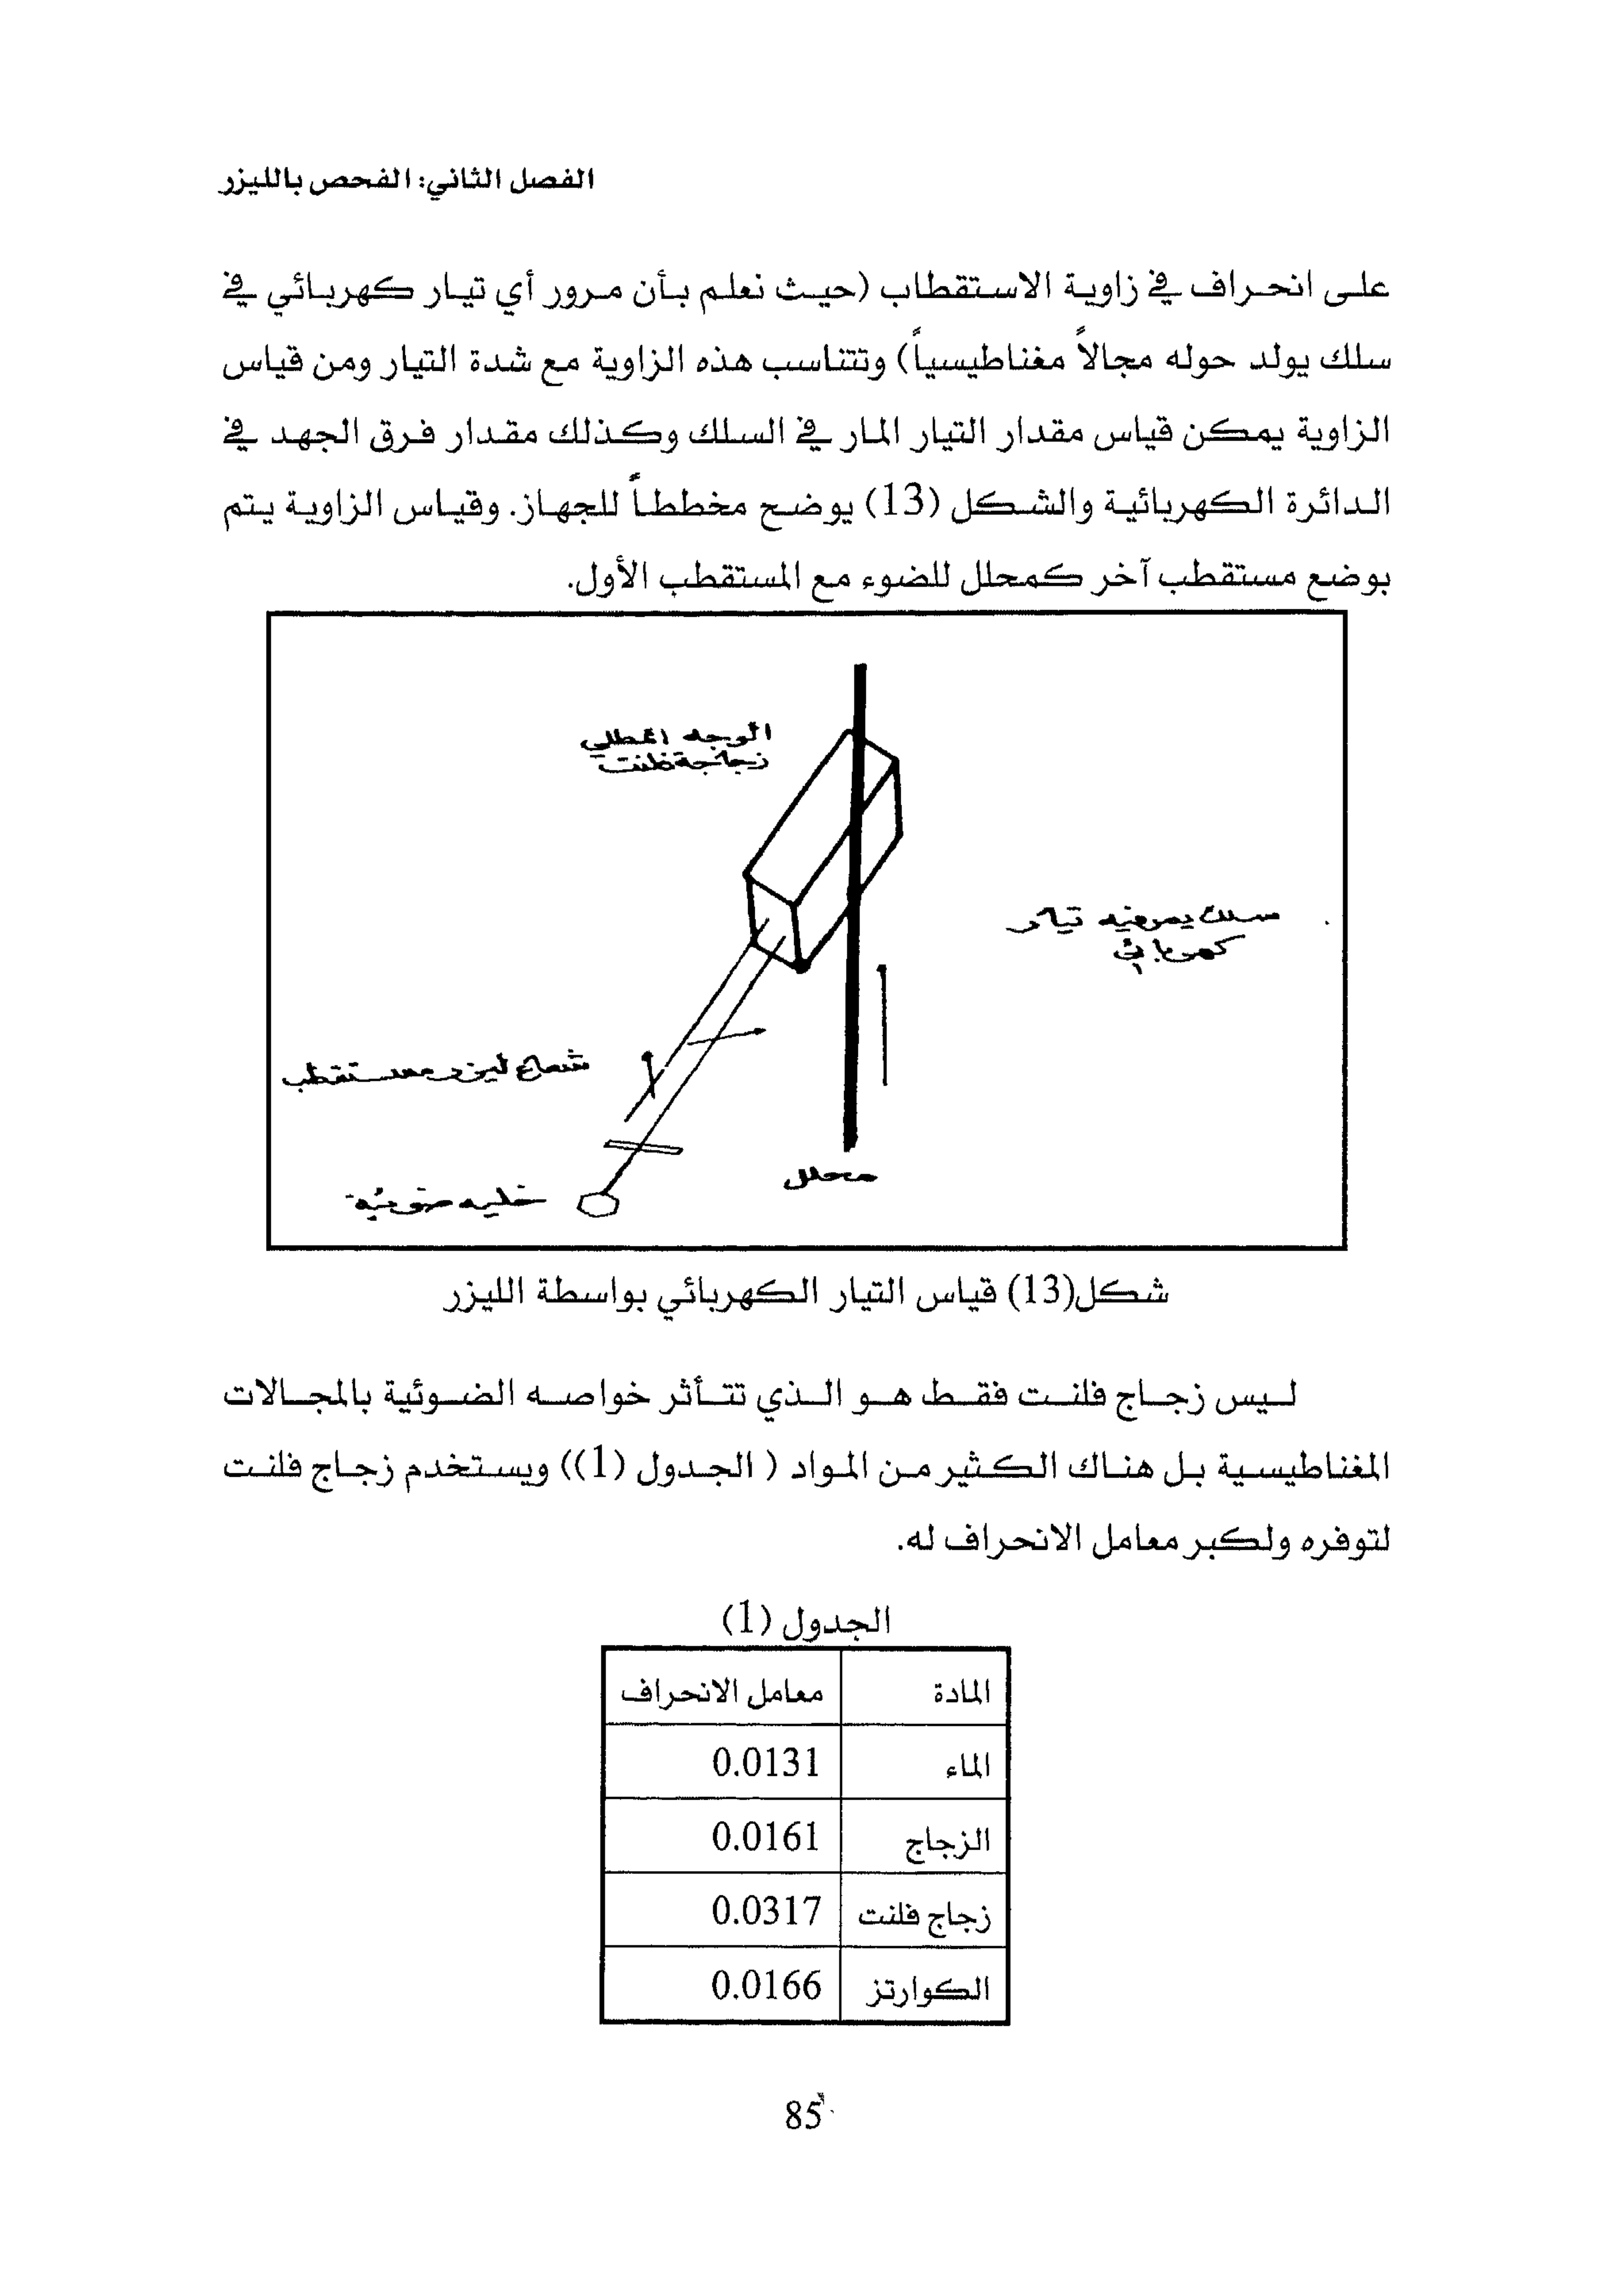 الفصل الثاني: الفحص بالليزر
على انحراف في زاوية الاستقطاب (حيث نعلم بأن مرور أي تيار كهربائي في
سلك يولد حوله مجالاً مغناطيسياً) وتتناسب هذه الزاوية مع شدة التيار ومن قياس
الزاوية يمكن قياس مقدار التيار المار في السلك وكذلك مقدار فرق الجهد في
الدائرة الكهربائية والشكل (13) يوضح مخططاً للجهاز. وقياس الزاوية يتم
بوضع مستقطب آخر كمحلل للضوء مع المستقطب الأول.
الوجه المطلي
زجاجة فلنت
سلك يمر فيه تيار
كهربائي
شعاع ليزر مستقطب
محلل
خليه ضوئية
شكل(13) قياس التيار الكهربائي بواسطة الليزر
ليس زجاج فلنت فقط هو الذي تتأثر خواصه الضوئية بالمجالات
المغناطيسية بل هناك الكثير من المواد ( الجدول (1)) ويستخدم زجاج فلنت
لتوفره ولكبر معامل الانحراف له.
الجدول (1)
المادة معامل الانحراف
الماء 0.0131
الزجاج 0.0161
زجاج فلنت 0.0317
الكوارتز 0.0166
85